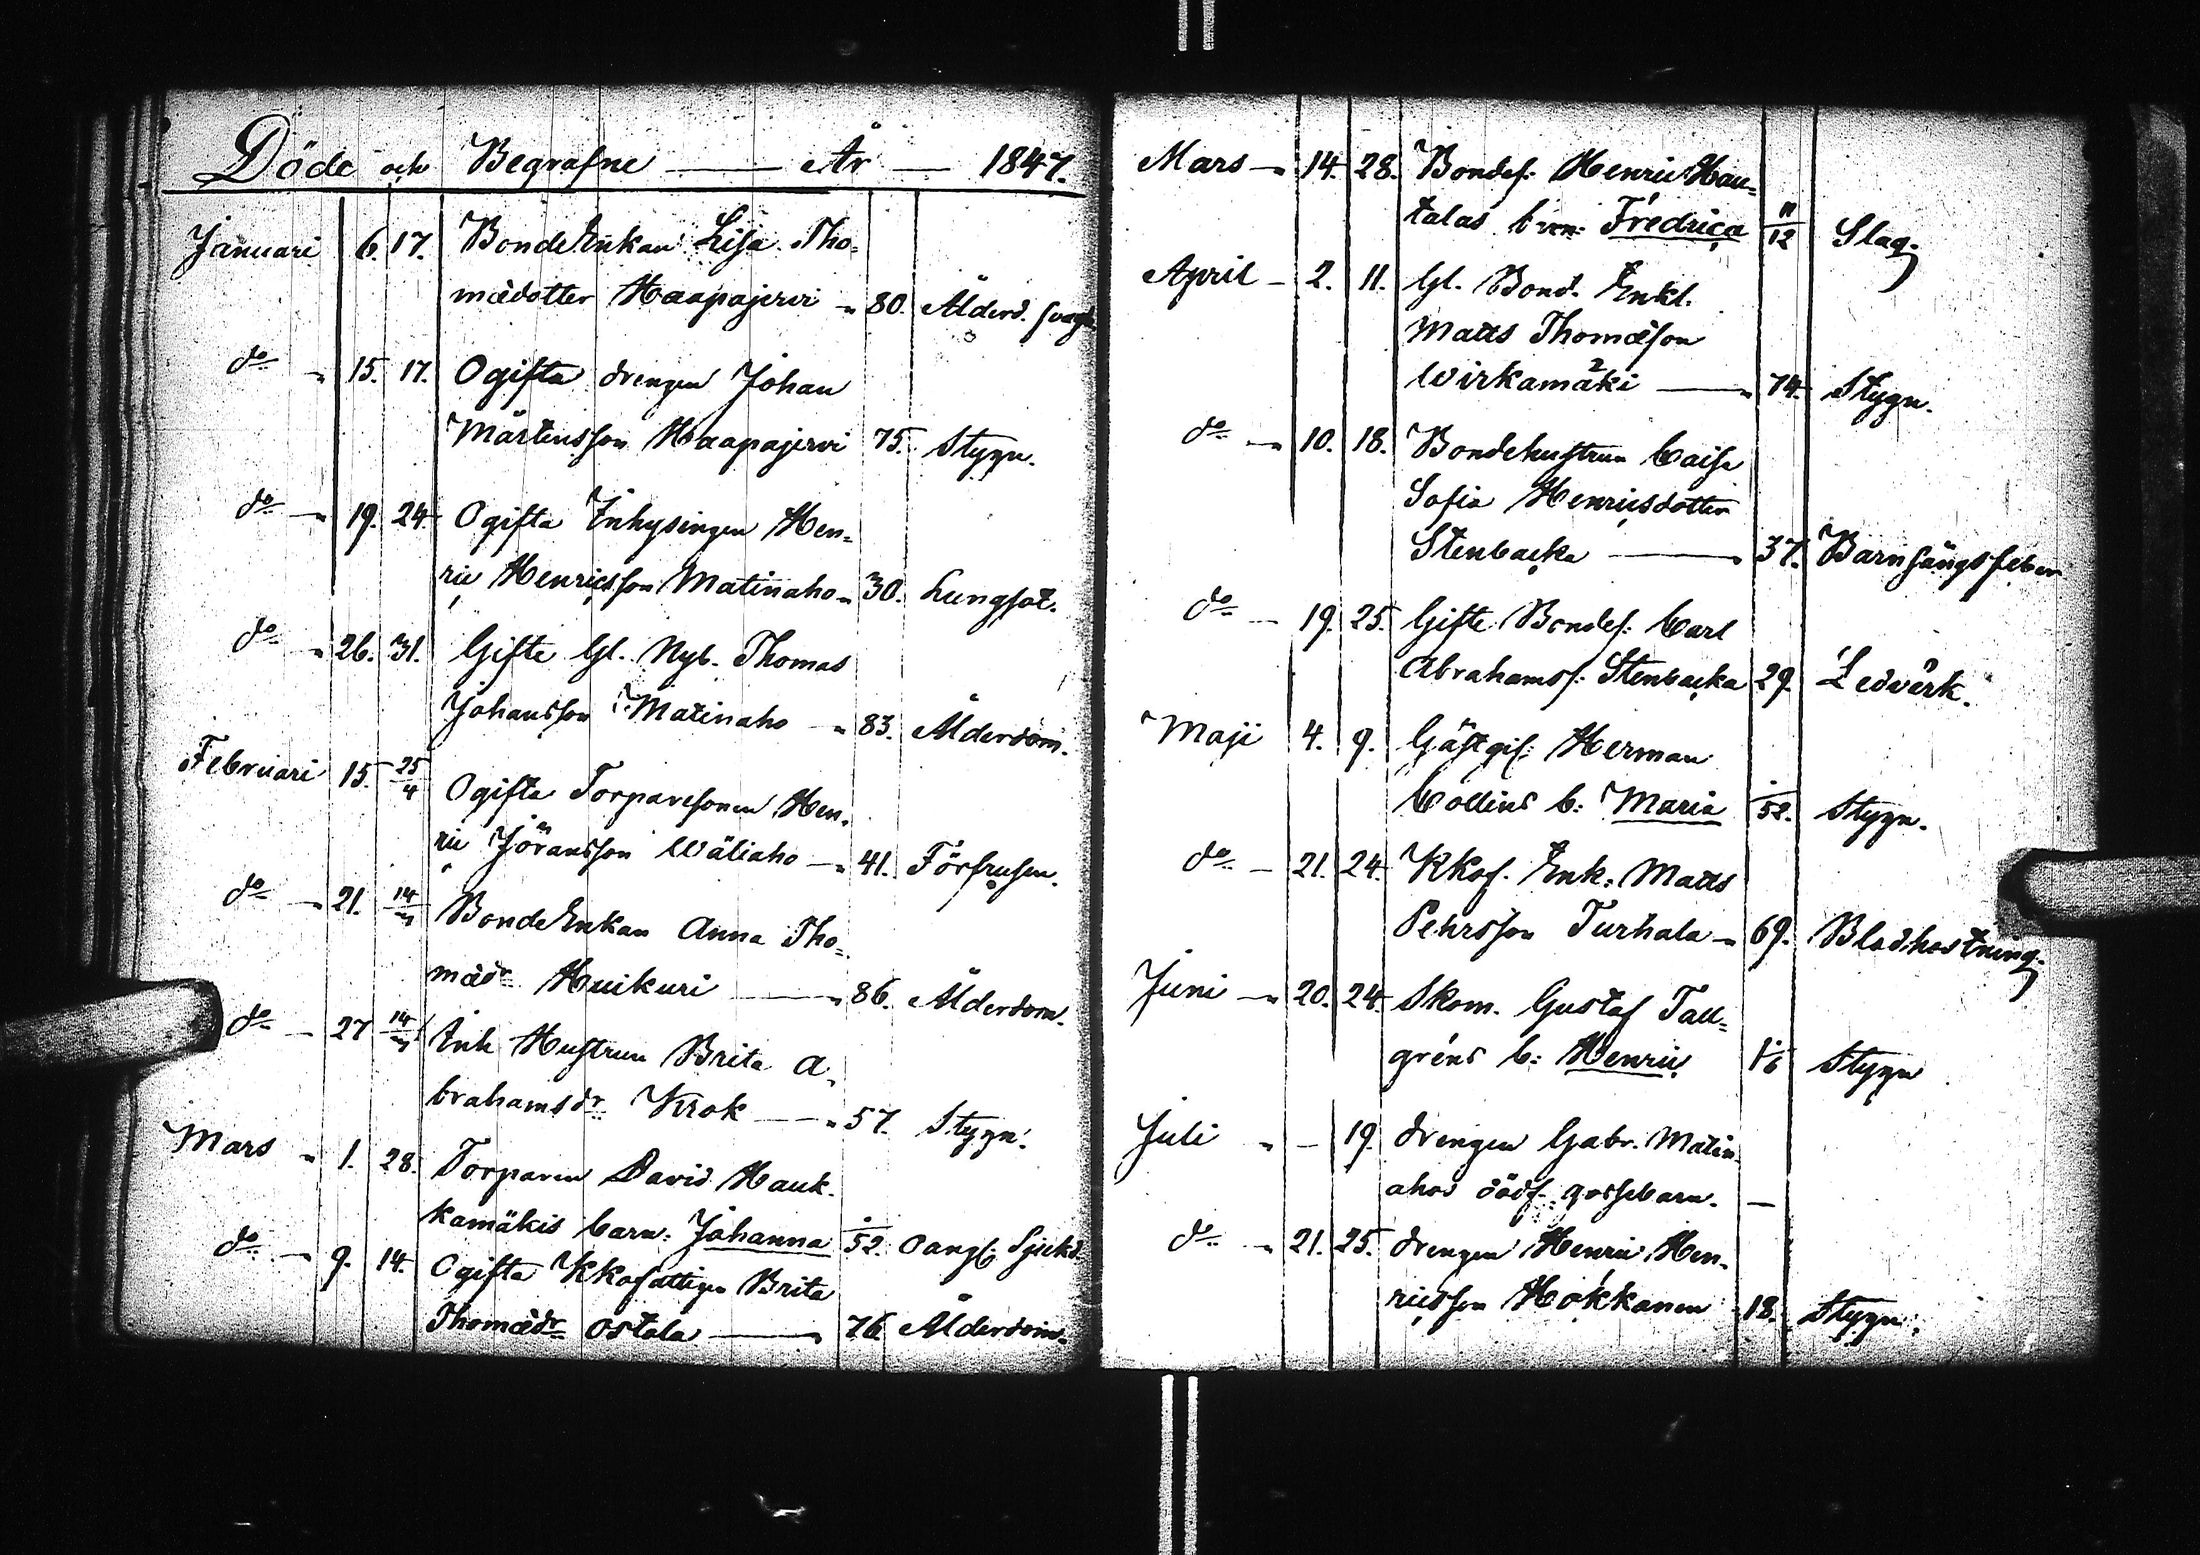 Döde och Begrafne — År — 1847.
Januari 6. 17. BondeEnkan Lisa Tho-
mædotter Haapajervi - 80. Ålderd. svagh.
do - 15. 17. Ogifta drengen Johan
Mårtensson Haapajervi 75. Stygn.
do - 19. 24. Ogifta Inhysingen Hen-
ric Henricsson Matinaho - 30. Lungsot.
do - 26. 31. Gifte Gl. Nyb. Thomas
Johansson Matinaho - 83. Ålderdom.
Februari 15. 25/4 Ogifta Torparesonen Hen-
ric Jöransson Wäliaho - 41. Förfrusen.
do - 21. 14/3 BondeEnkan Anna Tho-
mædr Huikuri - 86. Ålderdom.
do - 27 14/3 Inh Hustrun Brita A-
brahamsdr Krok - 57. Stygn.
Mars - 1. 28. Torparen David Hauk-
kamäkis barn: Johanna /52. Oangf. Sjukd.
do - 9. 14. Ogifta Kkofattigen Brita
Thomædr Ostola - 76 Ålderdom.
Mars - 14. 28. Bondes: Henric Hau-
talas barn: Fredrica 11/12 Slag.
April - 2. 11. Gl. Bond. Enkl.
Matts Thomæson
Wirkamäki - 74. Stygn.
do - 10. 18. Bondehustrun Caisa
Sofia Henricsdotter
Stenbacka - 37. Barnsängsfeber
do - 19. 25. Gifte Bondes: Carl
Abrahamss: Stenbacka 29. Ledvärk.
Maji 4. 9. Gästgif: Herman
Collins b: Maria /52. Stygn.
do - 21. 24. Kkof. Enk: Matts
Pehrsson Turhala - 69. Blodhostning.
Juni - 20. 24. Skom. Gustaf Tall-
gréns b: Henric Stygn
Juli - - 19. drengen Gabr. Matin-
ahos dödf. gossebarn. —
do - 21. 25. drengen Henric Hen-
ricsson Hokkanen 18. Stygn.